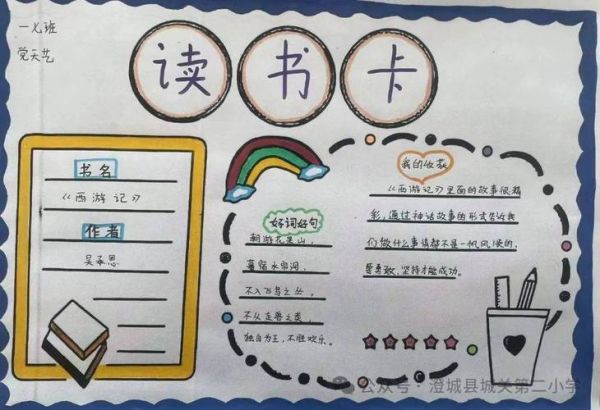 一七班
党天艺
读书卡
书名
《西游记》
作者
吴承恩
好词好句
朝游花果山，
暮宿水帘洞，
不入飞鸟之丛，
不从走兽之类，
独自为王，不胜欢乐。
我的收获
《西游记》里面的故事很精
彩，通过神话故事的形式告诉我
们做什么事情都不是一帆风顺的，
要勇敢、坚持才能成功。
公众号·澄城县城关第二小学